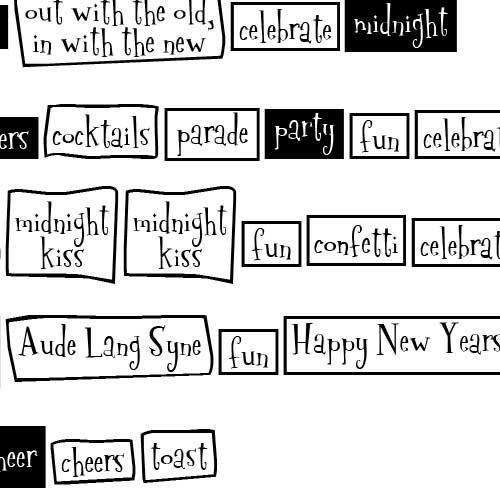 out with the old,
in with the new
celebrate midnight
ers cocktails parade party fun celebrat
midnight kiss midnight kiss fun confetti celebrat
Aude Lang Syne fun Happy New Years
heer cheers toast